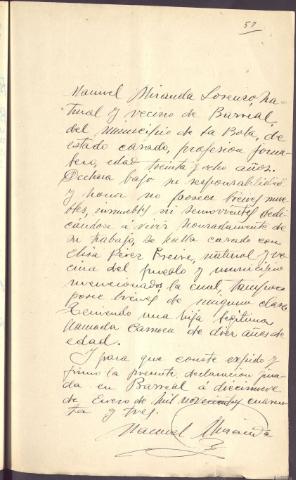 57
Manuel Miranda Lorenzo, na-
tural y vecino de Barreal
del municipio de La Bola, de
estado casado, profesión jorna-
lero, edad treinta y ocho años.
Declara bajo su responsabilidad
y honor no poseer bienes mue-
bles, inmuebles ni semovientes dedi-
cándose a vivir honradamente de
su trabajo, se halla casado con
Elisa Pérez Freire, natural y ve-
cina del pueblo y municipio
mencionados la cual, tampoco
posee bienes de ninguna clase
teniendo una hija legítima
llamada Carmen de diez años de
edad.
Y para que conste expido y
firmo la presente declaración jura-
da en Barreal á diecinueve
de Enero de mil novecientos cuaren-
ta y tres.
Manuel Miranda